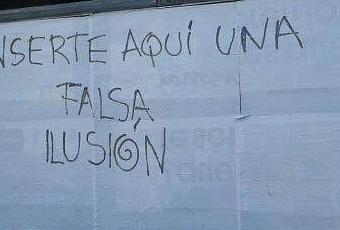 INSERTE AQUÍ UNA
FALSA
ILUSIÓN